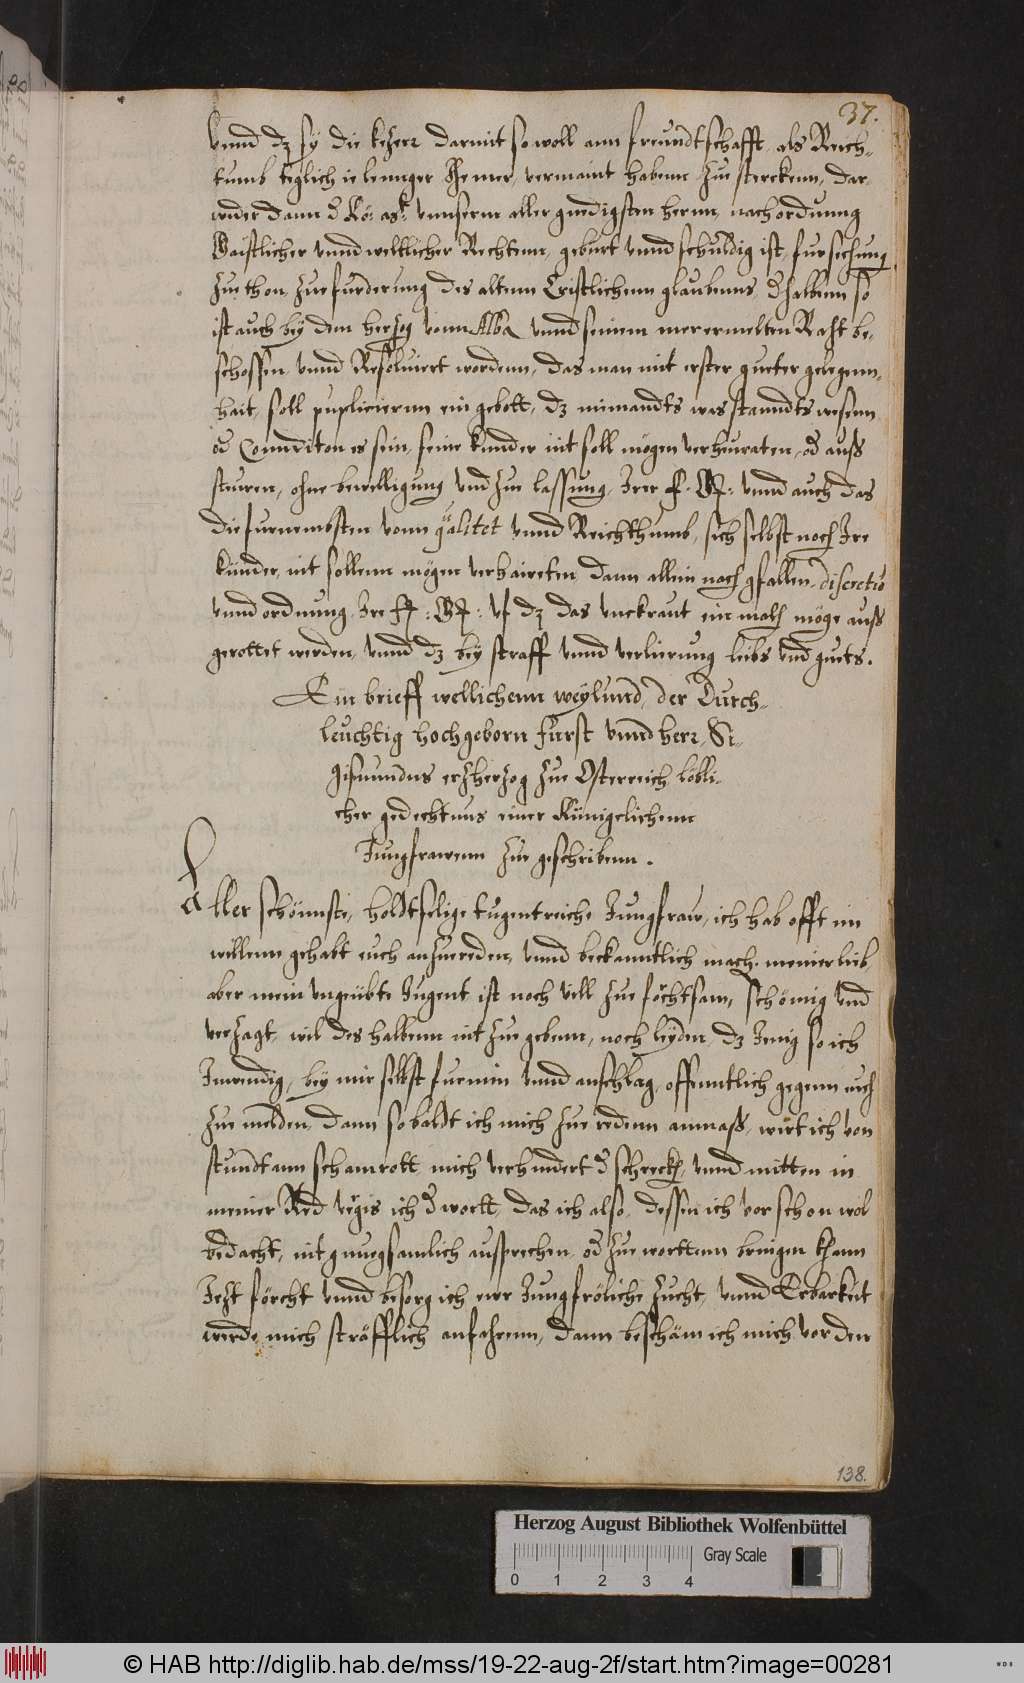 37.
vnnd dz sy die kezerr darmit sowoll ann freündtschafft, als Reich-
tumb teglich ie lennger Jhe mer, vermaint habenn zue sterckenn, dar
wider dann d Kö: Mt: vnnserm aller gnedigsten hernn, nach ordnung
Gaistlicher vnnd welltlicher Rechtenn, geburt vnnd schuldig ist, fursechung
zue thon, zue furderung des altenn Cristlichenn glaubenns, dhalbenn so
ist auch bey dem herzog vonn Alba vnnd seinem merermelten Raht be-
schossen vnnd Resoluiert wordenn, das man mit erster gueter gelegenn-
hait, soll puplicierenn ein gebott, dz niemandts was stanndts wesenn
od Conndition es sein, seine kinder nit soll mögen verheuraten, od auss
steuren, ohne bewilligung vnd zue lassung, Irer F: G: vnnd auch das
die furnembsten vonn qalitet vnnd Reichthumb, sich selbst noch Ire
kinder, nit sollenn mögen verhaireten, dann allein nach gfallen, discretio
vnnd ordnung, Ire F: G: vf dz das vnckraut ein mahl möge auss
gerottet werden, vnnd dz bey straff vnnd verlierung leibs vnd guets.
Ein brieff wellichenn weylund, der Durch-
leuchtig hochgeborn fürst vnnd herr, Si-
gismundus erzherzog zue Osterreich löbli-
cher gedechtnus einer Künigelichenn
Jungfrawenn zue geschribenn.
Aller schönnste, holdtselige tugentreiche Jungfraw, ich hab offt im
willenn gehabt euch anzuereden, vnnd beckanntlich mach, meiner lieb
aber mein vngeübte Jugent ist noch vill zue föchtsam, schömig vnd
verzagt, wil deshalbenn nit zue gebenn, noch leyden, dz Jenig so ich
Inwendig, bey mir selbst furnim vnnd anschlag, offenntlich gegenn euch
zue melden, dann so baldt ich mich zue redenn anmass, wirt ich von
stundt ann schamrott, mich verhindert d schreckh, vnnd mitten in
meiner Red vergis ich d wortt, das ich also, dessen ich vor schon wol
bedacht, nit gnuegsamlich aussprechen, od zue worttenn bringen khann
Jezt förcht vnnd besorg ich ewr Jungfröliche zucht, vnnd Erbarkeit
werde mich sträfflich anfahenn, dann beschäm ich mich vor der
138.
Herzog August Bibliothek Wolfenbüttel
Gray Scale
0 1 2 3 4
© HAB http://diglib.hab.de/mss/19-22-aug-2f/start.htm?image=00281